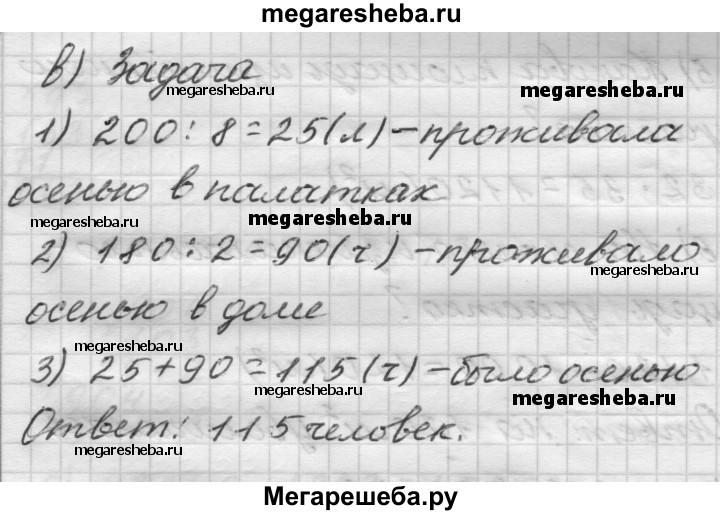 megaresheba.ru
в) Задача
megaresheba.ru
megaresheba.ru
1) 200 : 8 = 25 (л) – проживала
megaresheba.ru
осенью в палатках
megaresheba.ru
megaresheba.ru
2) 180 : 2 = 90 (ч) – проживало
megaresheba.ru
осенью в доме
megaresheba.ru
3) 25 + 90 = 115 (ч) – было осенью
megaresheba.ru
megaresheba.ru
Ответ: 115 человек.
megaresheba.ru
Мегарешеба.ру